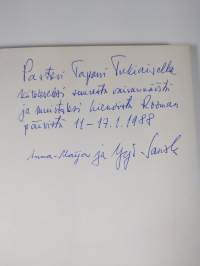 Pastori Tapani Tukiaiselle
kiitokseksi suuresta vaivannäöstä
ja muistoksi hienoista Rooman
päivistä 11-17.1.1988
Anna-Maija ja Yrjö